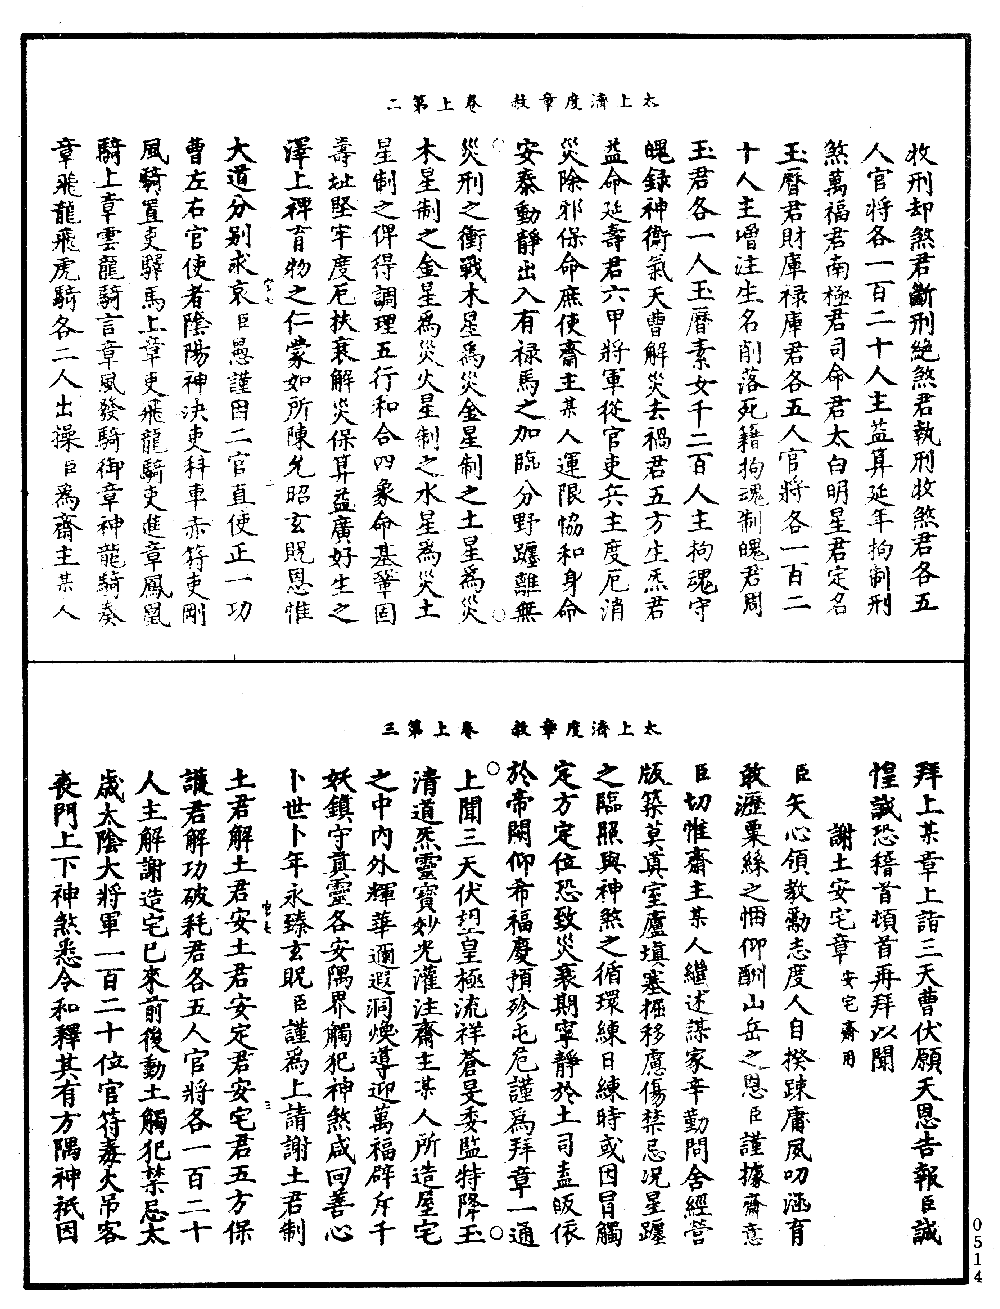 太上濟度章赦　卷上第二
收刑却煞君斷刑絶煞君執刑收煞君各五
人官將各一百二十人主益算延年拘制刑
煞萬福君南極君司命君太白明星君定名
玉曆君財庫禄庫君各五人官將各一百二
十人主增注生名削落死籍拘魂制魄君周
玉君各一人玉曆素女千二百人主拘魂守
魄録神衛氣天曹解災去禍君五方生炁君
益命延壽君六甲將軍從官吏兵主度厄消
災除邪保命庶使齋主某人運限恊和身命
安泰動靜出入有禄馬之加臨分野躔離無
災刑之衝戰木星為災金星制之土星為災
木星制之金星為災火星制之水星為災土
星制之俾得調理五行和合四象命基鞏固
壽址堅牢度厄扶衰解災保算益廣好生之
澤上禆育物之仁蒙如所陳允昭玄貺恩惟
大道分别求哀臣愚謹因二官直使正一功
曹左右官使者陰陽神決吏科車赤符吏剛
風騎置吏驛馬上章吏飛龍騎吏進章鳳凰
騎上章雲龍騎言章風發騎御章神龍騎奏
章飛龍飛虎騎各二人出操臣為齋主某人
太上濟度章赦　卷上第三
拜上某章上詣三天曹伏願天恩告報臣誠
惶誠恐稽首頓首再拜以聞
謝土安宅章 安宅齋用
臣矢心領教勵志度人自揆踈庸夙叨涵育
敢瀝粟絲之悃仰酬山岳之恩臣謹據齋意
臣切惟齋主某人繼述謀家辛勤問舍經營
版築莫真室廬填塞掘移慮傷禁忌况星躔
之臨照與神煞之循環練日練時或因冒觸
定方定位恐致災衰期寧靜於土司盍皈依
於帝闕仰布福慶預殄屯危謹為拜章一通
上聞三天伏望皇極流祥蒼旻委監特降玉
清道炁靈寶妙光灌注齋主某人所造屋宅
之中內外輝華邇遐洞煥導迎萬福辟斥千
妖鎮守真靈各安隅界觸犯神煞咸回善心
卜世卜年永臻玄貺臣謹為上請謝土君制
土君解土君安土君安定君安宅君五方保
護君解功破耗君各五人官將各一百二十
人主解謝造宅已來前後動土觸犯禁忌太
歲太陰大將軍一百二十位官符毒火吊客
喪門上下神煞悉令和釋其有方隅神祇因
0514